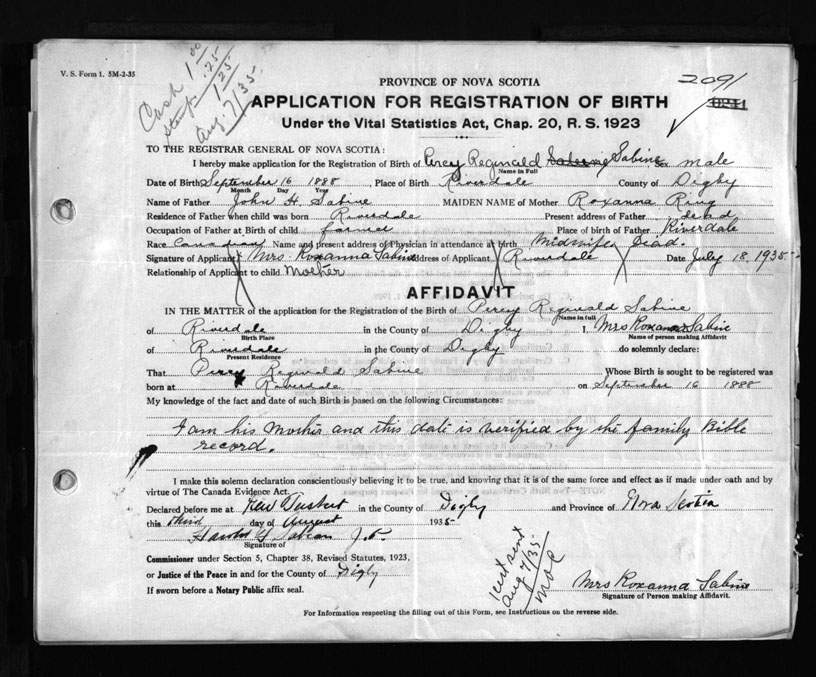 V. S. Form 1. 5M-2-35
Cash 1.00
stamp .25
1.25
Aug. 7/35
PROVINCE OF NOVA SCOTIA
2091
APPLICATION FOR REGISTRATION OF BIRTH
Under the Vital Statistics Act, Chap. 20, R. S. 1923
TO THE REGISTRAR GENERAL OF NOVA SCOTIA:
I hereby make application for the Registration of Birth of Percy Reginald Sabine male
Name in Full
Date of Birth September 16 1888 Place of Birth Riverdale County of Digby
Month Day Year
Name of Father John H. Sabine MAIDEN NAME of Mother Roxanna Ring
Residence of Father when child was born Riverdale Present address of Father
Occupation of Father at Birth of child farmer Place of birth of Father Riverdale
Race Canadian Name and present address of Physician in attendance at birth Midwife Dead.
Signature of Applicant Mrs. Roxanna Sabine Address of Applicant Riverdale Date July 18, 1935
Relationship of Applicant to child Mother
AFFIDAVIT
IN THE MATTER of the application for the Registration of the Birth of Percy Reginald Sabine
Name in full
of Riverdale in the County of Digby I, Mrs Roxanna Sabine
Birth Place Name of person making Affidavit
of Riverdale in the County of Digby do solemnly declare:
Present Residence
That Percy Reginald Sabine Whose Birth is sought to be registered was
born at Riverdale on September 16 1888
My knowledge of the fact and date of such Birth is based on the following Circumstances:
I am his Mother and this date is verified by the family Bible
record.
I make this solemn declaration conscientiously believing it to be true, and knowing that it is of the same force and effect as if made under oath and by
virtue of The Canada Evidence Act.
Declared before me at New Tusket in the County of Digby and Province of Nova Scotia
this third day of August 1935
Harold G. Sabean J.P.
Signature of
Commissioner under Section 5, Chapter 38, Revised Statutes, 1923,
or Justice of the Peace in and for the County of Digby
If sworn before a Notary Public affix seal.
cert sent
Aug 7/35
Mrs Roxanna Sabine
Signature of Person making Affidavit.
For Information respecting the filling out of this Form, see Instructions on the reverse side.